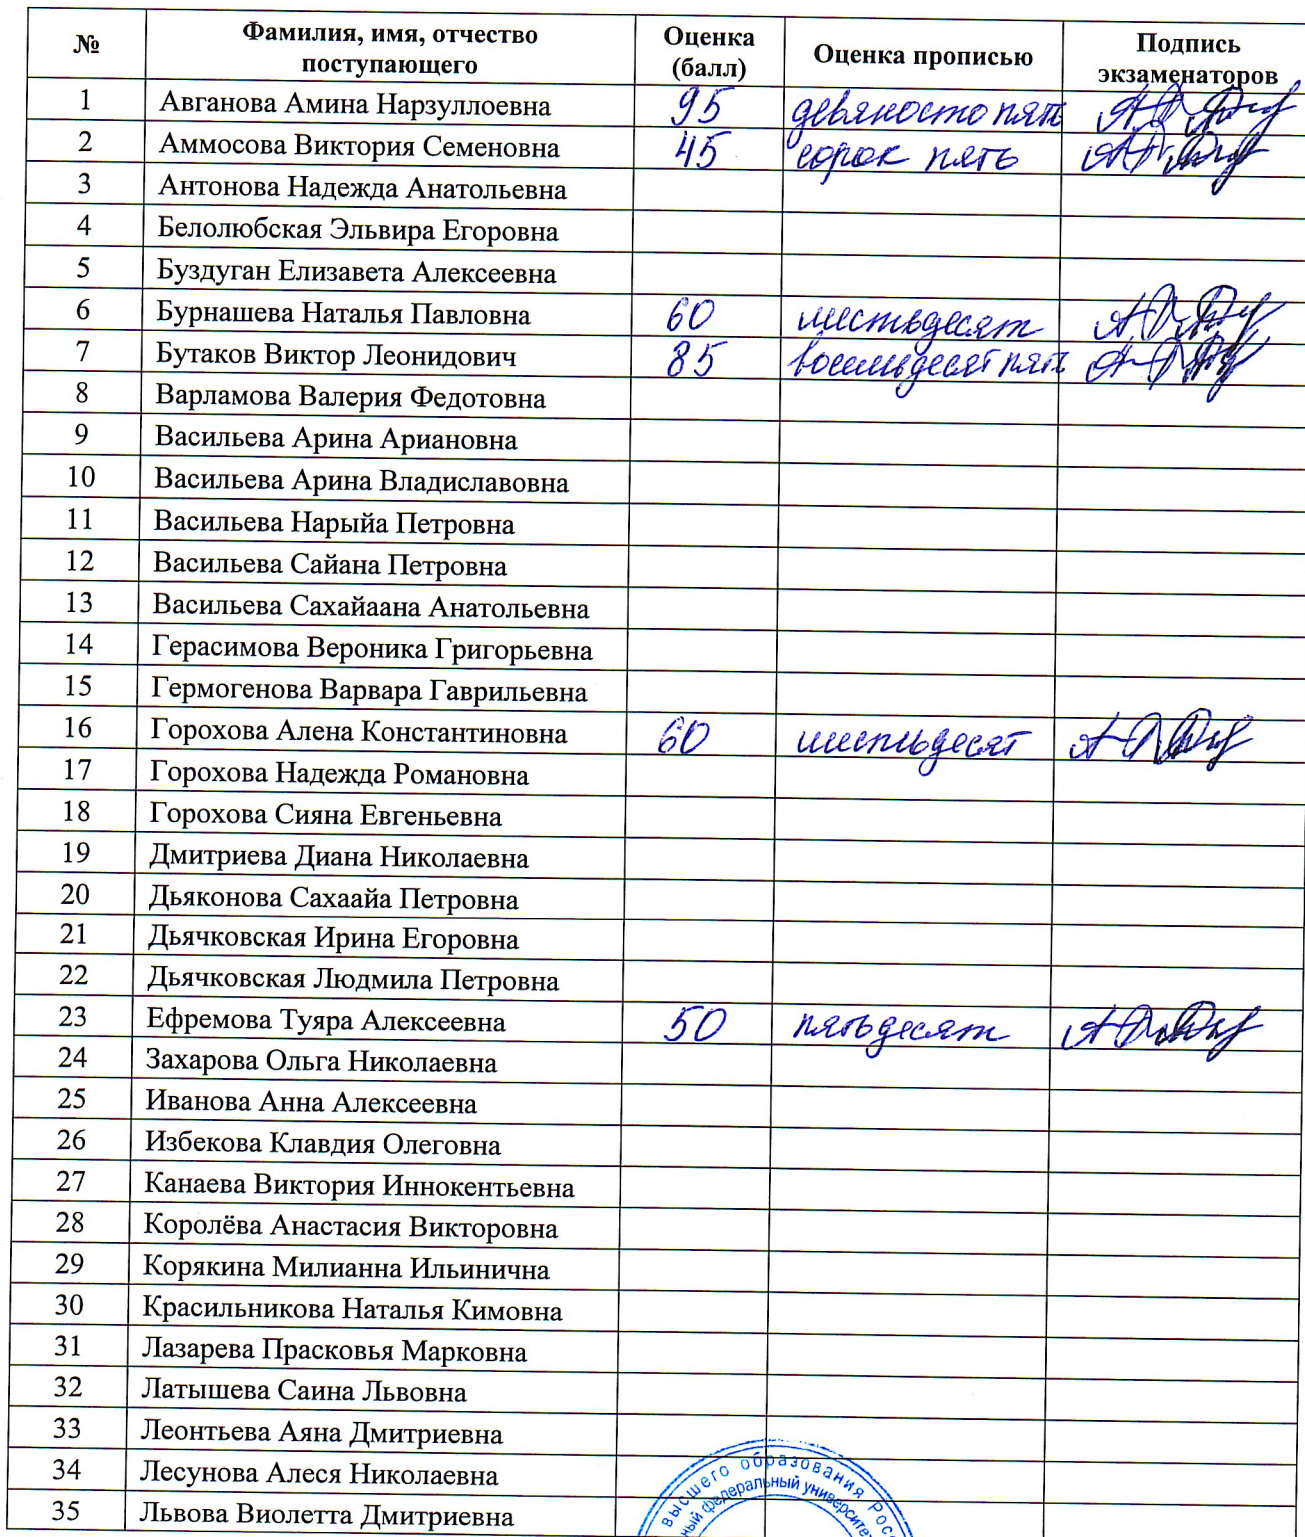 № Фамилия, имя, отчество поступающего Оценка (балл) Оценка прописью Подпись экзаменаторов
1 Авганова Амина Нарзуллоевна 95 девяносто пять
2 Аммосова Виктория Семеновна 45 сорок пять
3 Антонова Надежда Анатольевна
4 Белолюбская Эльвира Егоровна
5 Буздуган Елизавета Алексеевна
6 Бурнашева Наталья Павловна 60 шестьдесят
7 Бутаков Виктор Леонидович 85 восемьдесят пять
8 Варламова Валерия Федотовна
9 Васильева Арина Ариановна
10 Васильева Арина Владиславовна
11 Васильева Нарыйа Петровна
12 Васильева Сайана Петровна
13 Васильева Сахайаана Анатольевна
14 Герасимова Вероника Григорьевна
15 Гермогенова Варвара Гаврильевна
16 Горохова Алена Константиновна 60 шестьдесят
17 Горохова Надежда Романовна
18 Горохова Сияна Евгеньевна
19 Дмитриева Диана Николаевна
20 Дьяконова Сахаайа Петровна
21 Дьячковская Ирина Егоровна
22 Дьячковская Людмила Петровна
23 Ефремова Туяра Алексеевна 50 пятьдесят
24 Захарова Ольга Николаевна
25 Иванова Анна Алексеевна
26 Избекова Клавдия Олеговна
27 Канаева Виктория Иннокентьевна
28 Королёва Анастасия Викторовна
29 Корякина Милианна Ильинична
30 Красильникова Наталья Кимовна
31 Лазарева Прасковья Марковна
32 Латышева Саина Львовна
33 Леонтьева Аяна Дмитриевна
34 Лесунова Алеся Николаевна
35 Львова Виолетта Дмитриевна
высшего образования
федеральный